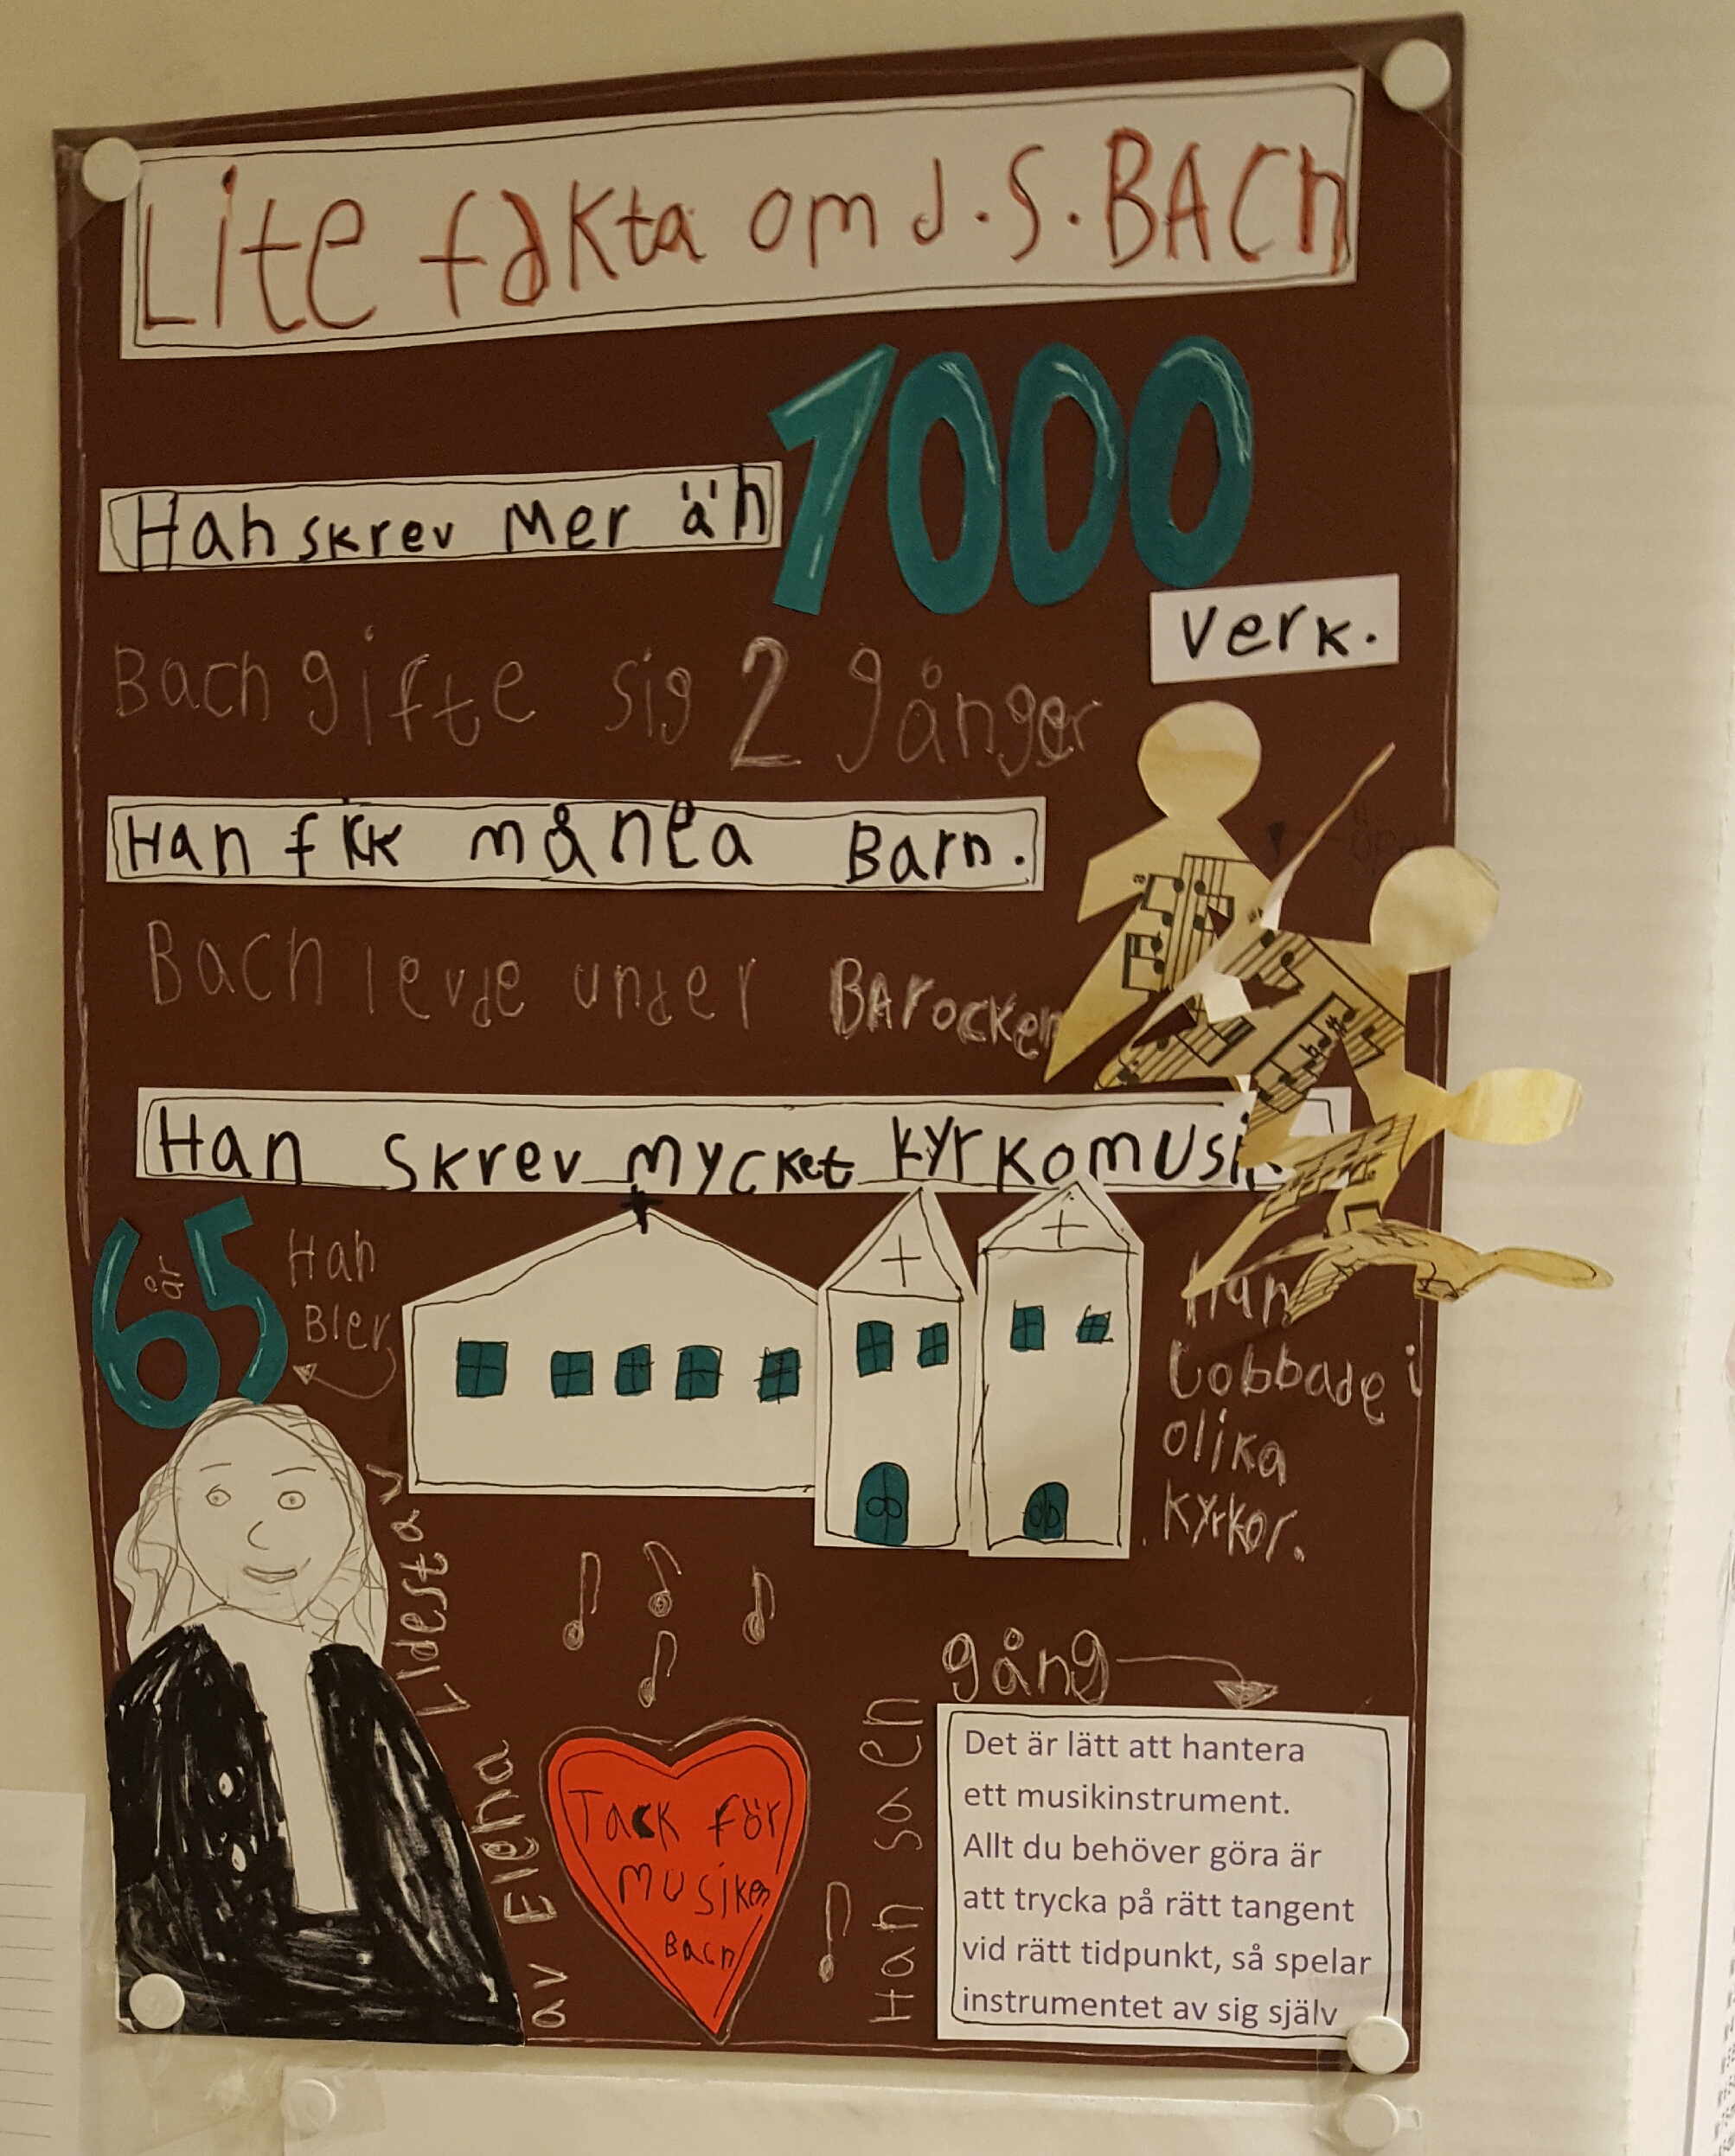 Lite fakta om J.S.BACh
Han skrev mer än 1000
verk.
Bach gifte sig 2 gånger
Han fick många Barn.
Bach levde under BArocken
Han skrev mycket kyrkomusik
65
år
Han
Blev
Han
Lobbade i
olika
kyrkor.
av Elena Lidestav
Tack för
musiken
Bach
Han sa en
gång
Det är lätt att hantera
ett musikinstrument.
Allt du behöver göra är
att trycka på rätt tangent
vid rätt tidpunkt, så spelar
instrumentet av sig själv